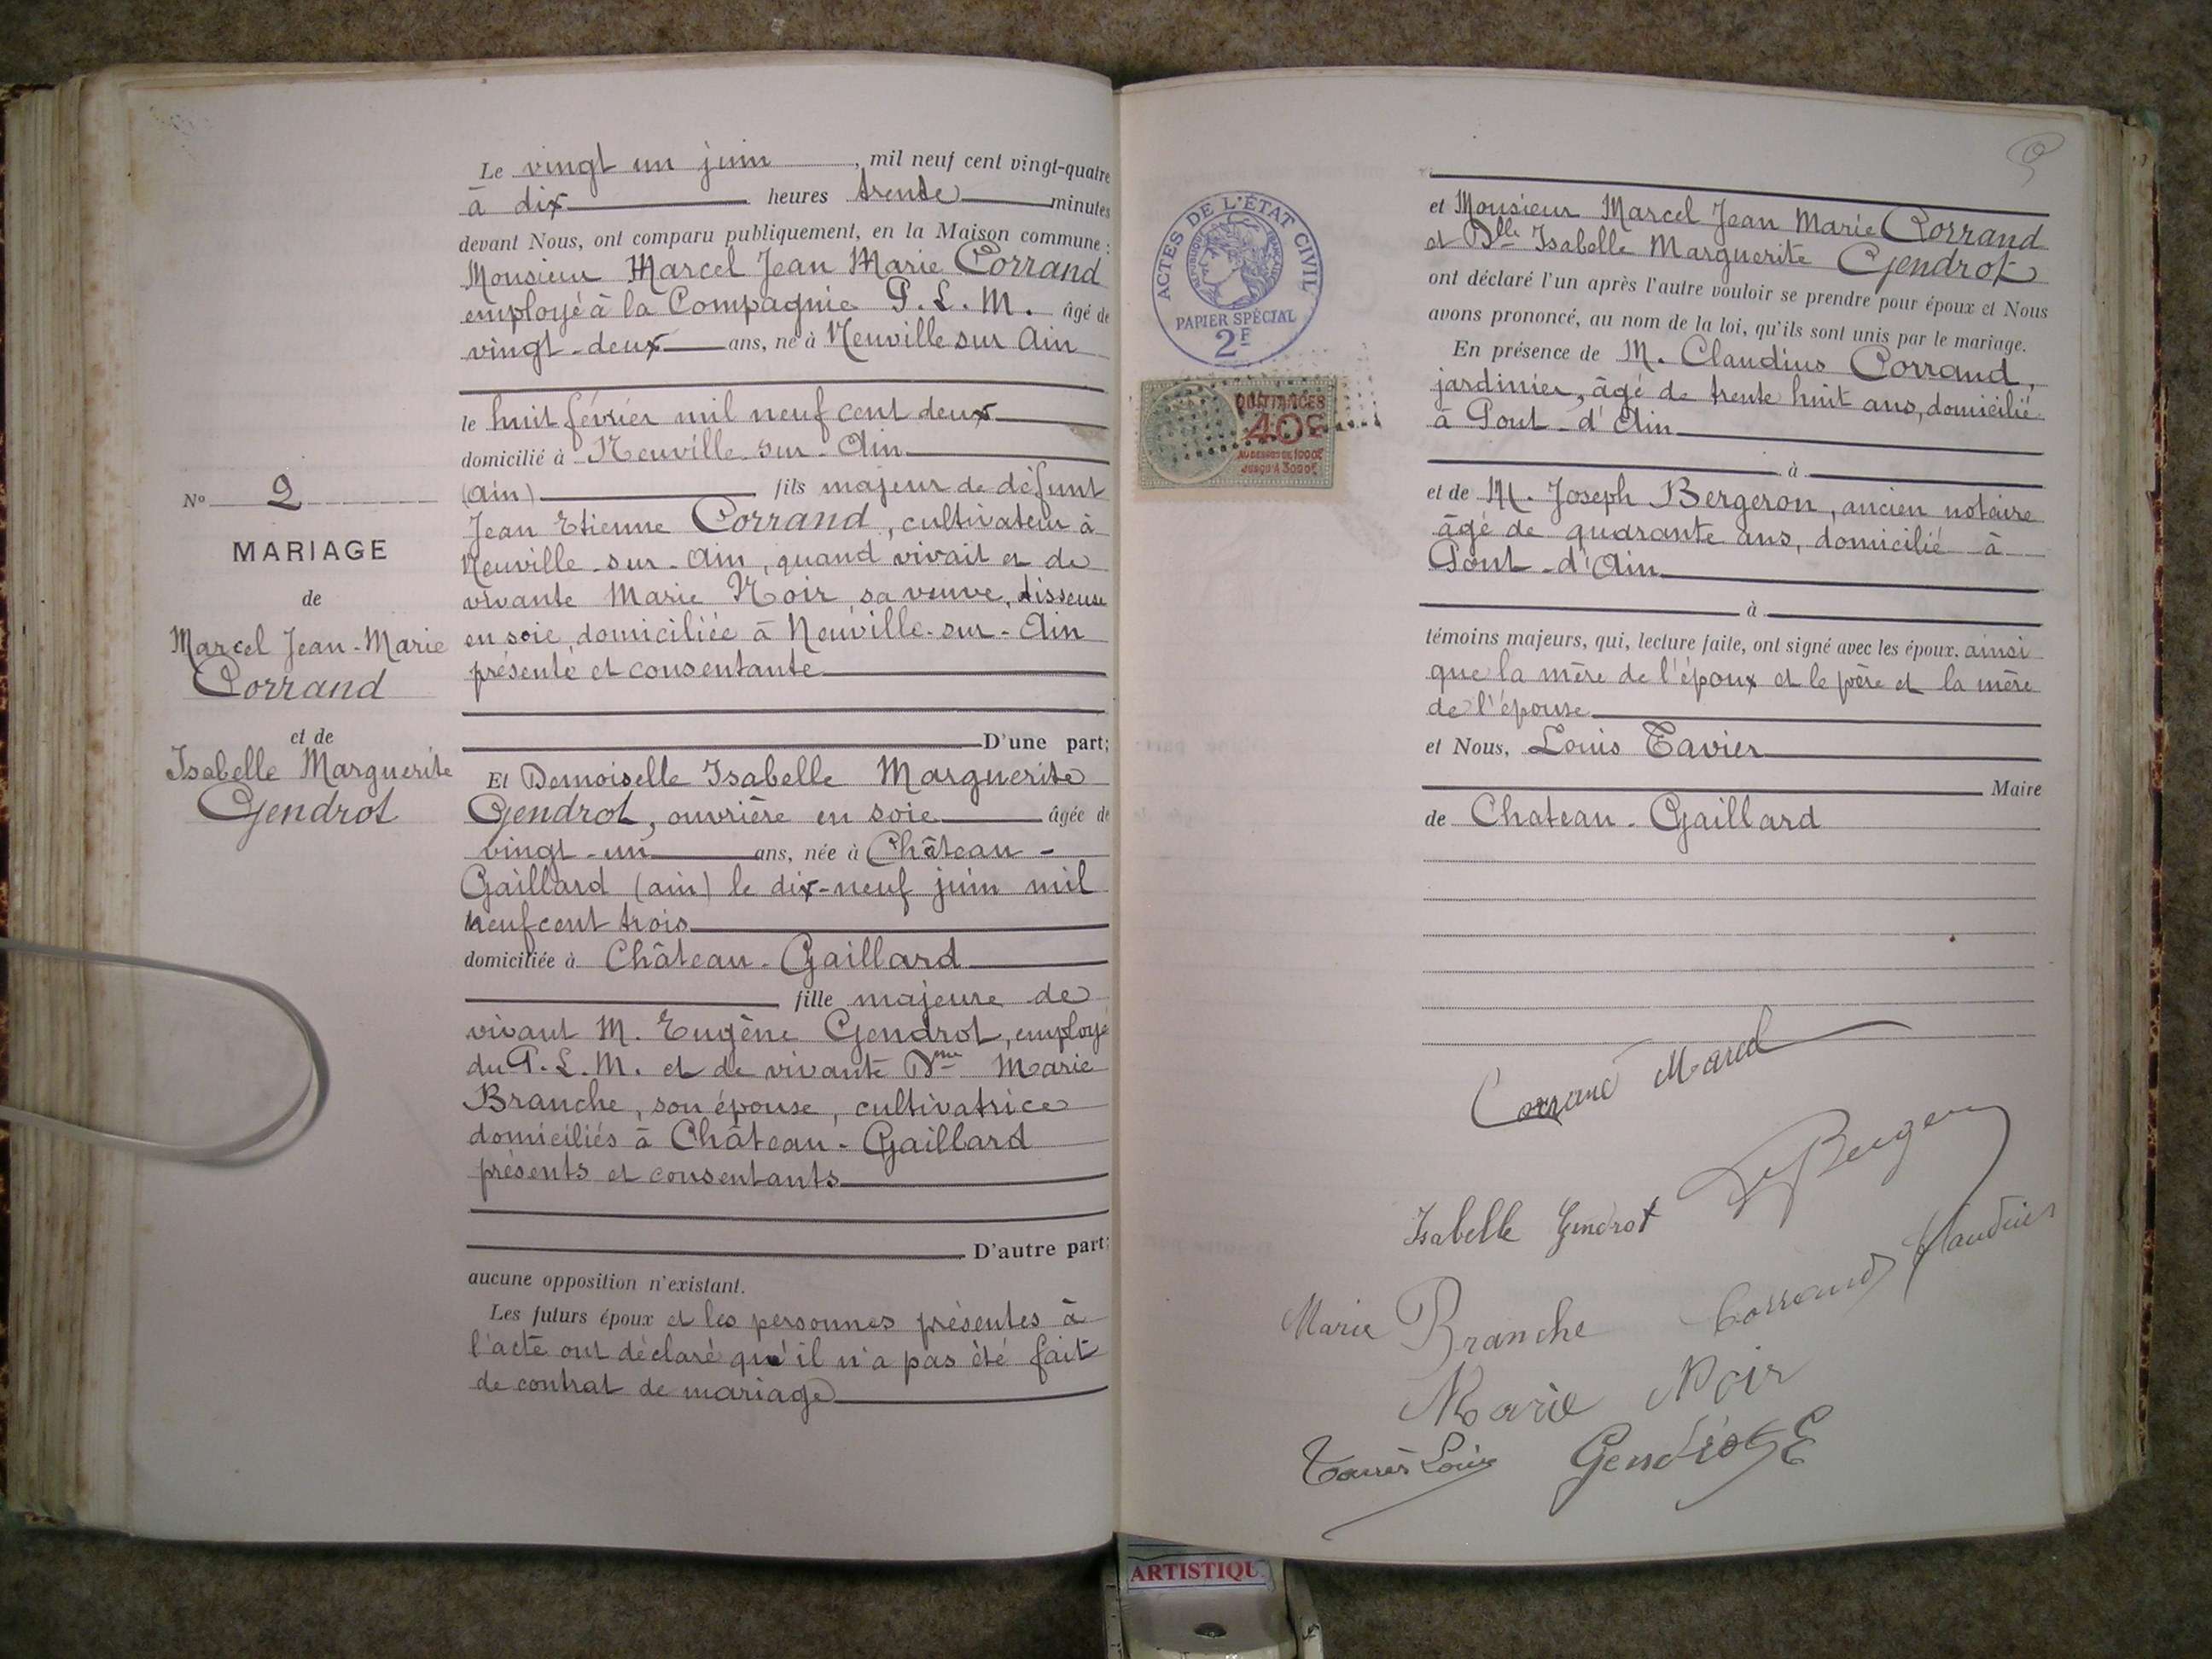 Le vingt un juin, mil neuf cent vingt-quatre
à dix heures trente minutes
devant Nous, ont comparu publiquement, en la Maison commune :
Monsieur Marcel Jean Marie Corrand
employé à la Compagnie P. L. M. âgé de
vingt-deux ans, né à Neuville sur Ain
le huit février mil neuf cent deux
domicilié à Neuville-sur-Ain
(Ain) fils majeur de défunt
Jean Etienne Corrand, cultivateur à
Neuville-sur-Ain, quand vivait et de
vivante Marie Noir, sa veuve, tisseuse
en soie, domiciliée à Neuville-sur-Ain
présente et consentante
D'une part;
Nº 2
MARIAGE
de
Marcel Jean-Marie
Corrand
et de
Isabelle Marguerite
Gendrot
Et Demoiselle Isabelle Marguerite
Gendrot, ouvrière en soie âgée de
vingt-un ans, née à Château-
Gaillard (ain) le dix-neuf juin mil
neuf cent trois
domiciliée à Château-Gaillard
fille majeure de
vivant M. Eugène Gendrot, employé
du P. L. M. et de vivante Dme Marie
Branche, son épouse, cultivatrice
domiciliés à Château-Gaillard
présents et consentants
D'autre part;
aucune opposition n'existant.
Les futurs époux et les personnes présentes à
l'acte ont déclaré qu'il n'a pas été fait
de contrat de mariage
ACTES DE L'ÉTAT CIVIL
RÉPUBLIQUE FRANÇAISE
PAPIER SPÉCIAL
2F
QUITTANCES
40c
AU DESSUS DE 1000f
JUSQU'A 3000f
et Monsieur Marcel Jean Marie Corrand
et Dlle Isabelle Marguerite Gendrot
ont déclaré l'un après l'autre vouloir se prendre pour époux et Nous
avons prononcé, au nom de la loi, qu'ils sont unis par le mariage.
En présence de M. Claudius Corrand,
jardinier, âgé de trente huit ans, domicilié
à Pont-d'Ain
à
et de M. Joseph Bergeron, ancien notaire
âgé de quarante ans, domicilié à
Pont-d'Ain
à
témoins majeurs, qui, lecture faite, ont signé avec les époux. ainsi
que la mère de l'époux et le père et la mère
de l'épouse
et Nous, Louis Tavier
Maire
de Chateau-Gaillard
Corrand Marcel
Isabelle Gendrot
Marie Branche
Corrand Claudius
Marie Noir
Gendrot E
ARTISTIQU